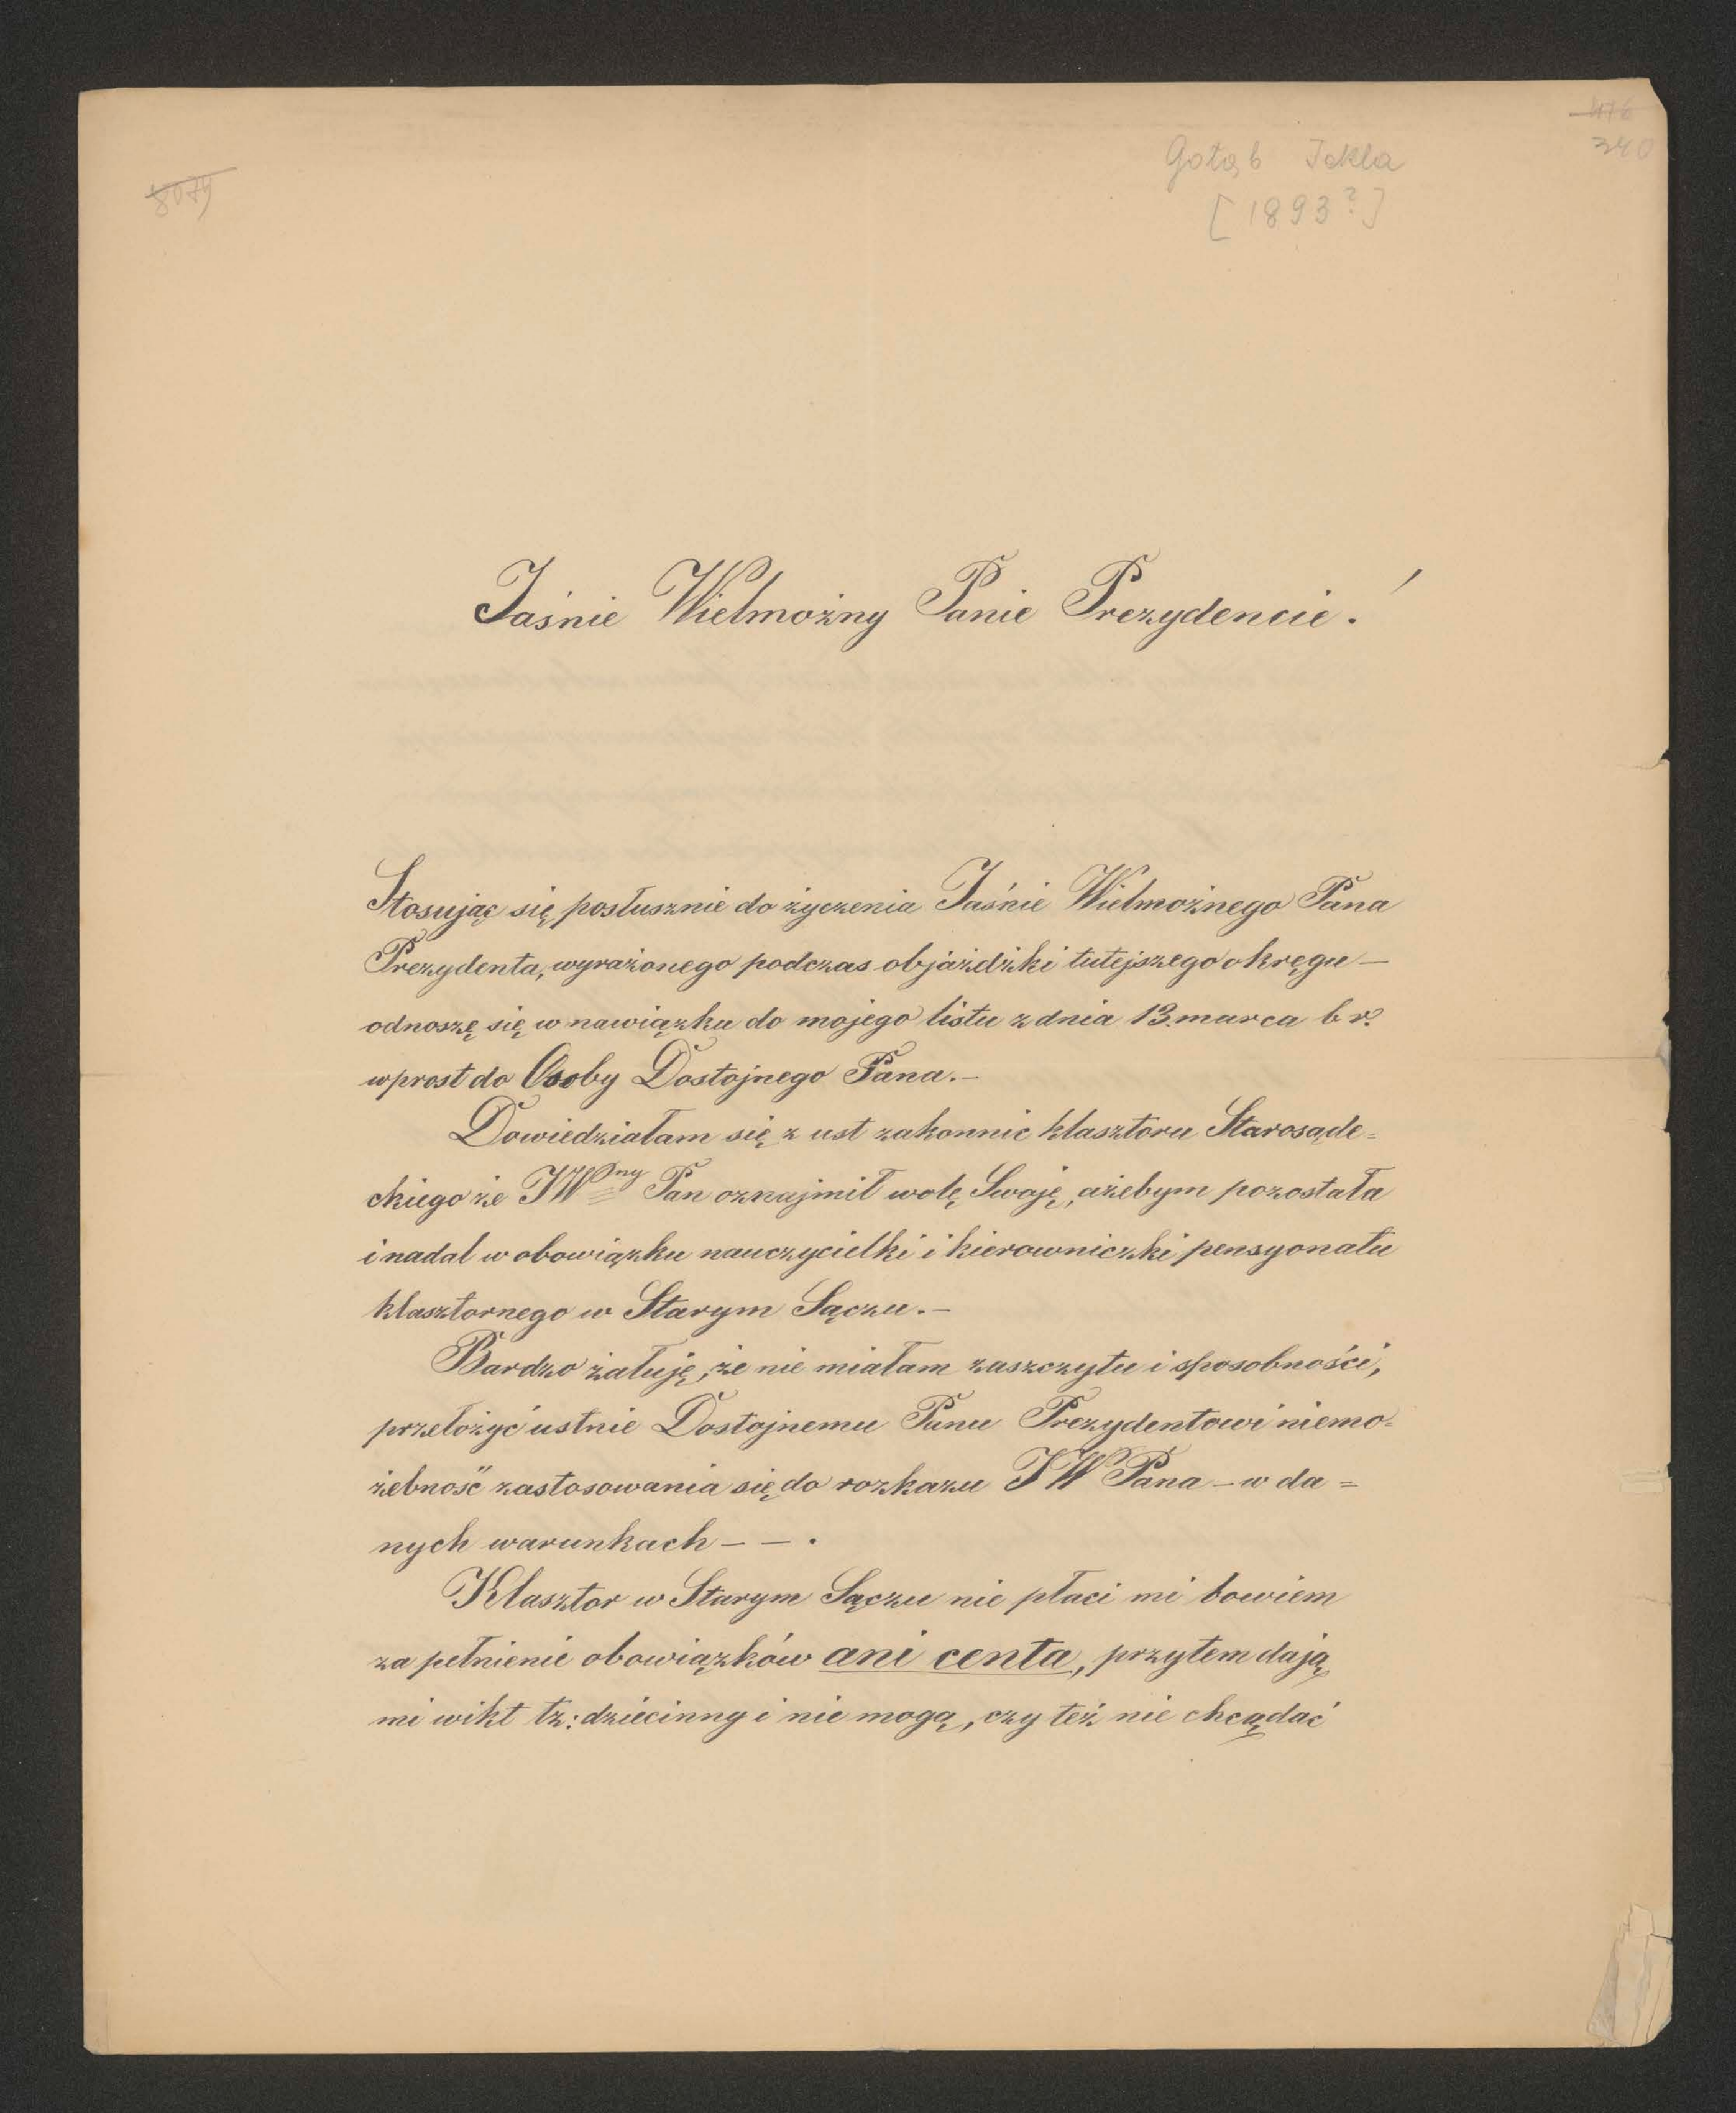 476
340
Gołąb Tekla
[1893?]
8079
Jaśnie Wielmożny Panie Prezydencie!
Stosując się posłusznie do życzenia Jaśnie Wielmożnego Pana
Prezydenta, wyrażonego podczas objażdżki tutejszego okręgu —
odnoszę się w nawiązku do mojego listu z dnia 13. marca b r.
wprost do Osoby Dostojnego Pana. —
Dowiedziałam się z ust zakonnic klasztoru Starosąde=
ckiego że JWny Pan oznajmił wolę Swoję, ażebym pozostała
i nadal w obowiązku nauczycielki i kierowniczki pensyonatu
klasztornego w Starym Sączu. —
Bardzo żałuję, że nie miałam zaszczytu i sposobności,
przełożyć ustnie Dostojnemu Panu Prezydentowi niemo=
żebność zastosowania się do rozkazu JW Pana — w da=
nych warunkach — — .
Klasztor w Starym Sączu nie płaci mi bowiem
za pełnienie obowiązków ani centa, przytem dają
mi wikt tz: dziecinny i nie mogą, czy też nie chcą dać